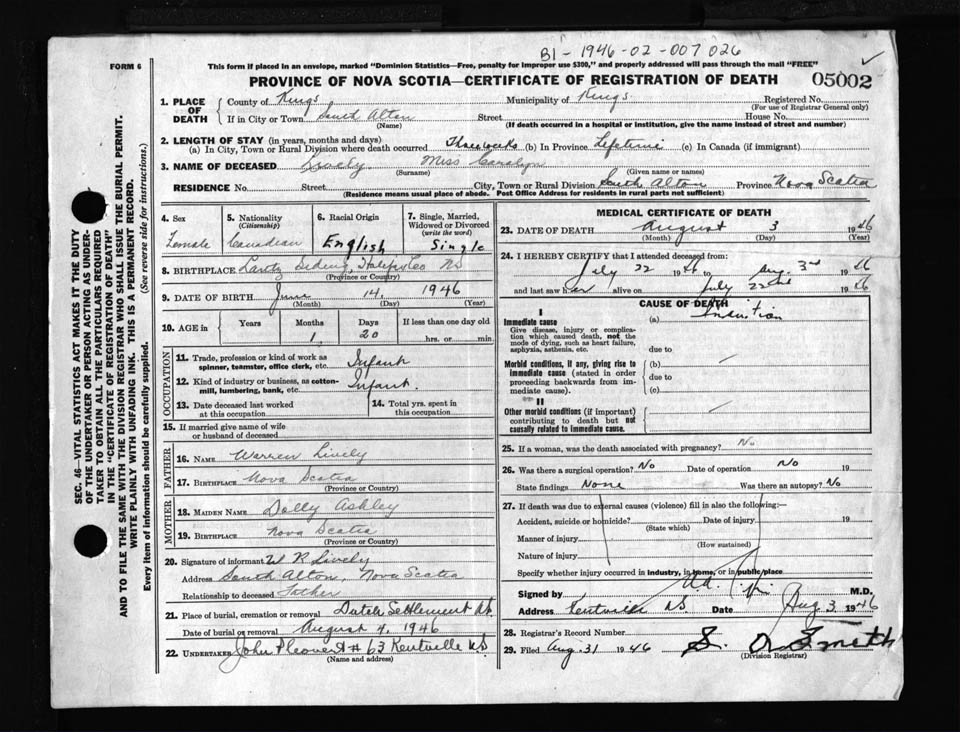 B1-1946-02-007026
FORM 6
This form if placed in an envelope, marked "Dominion Statistics—Free, penalty for improper use $300," and properly addressed will pass through the mail "FREE"
PROVINCE OF NOVA SCOTIA—CERTIFICATE OF REGISTRATION OF DEATH
05002
1. PLACE OF DEATH
County of Kings Municipality of Kings Registered No.
(For use of Registrar General only)
If in City or Town South Alton Street House No.
(Name) (If death occurred in a hospital or institution, give the name instead of street and number)
2. LENGTH OF STAY (in years, months and days)
(a) In City, Town or Rural Division where death occurred Three weeks (b) In Province Lifetime (c) In Canada (if immigrant)
3. NAME OF DECEASED Lively Miss Carolyn
(Surname) (Given name or names)
RESIDENCE No. Street City, Town or Rural Division South Alton Province Nova Scotia
(Residence means usual place of abode. Post Office Address for residents in rural parts not sufficient)
4. Sex
Female
5. Nationality (Citizenship)
Canadian
6. Racial Origin
English
7. Single, Married, Widowed or Divorced (write the word)
Single
8. BIRTHPLACE Lantz Siding, Halifax Co NS
(Province or Country)
9. DATE OF BIRTH June 14, 1946
(Month) (Day) (Year)
10. AGE in
Years Months Days If less than one day old
1 20 hrs. or min.
OCCUPATION
11. Trade, profession or kind of work as spinner, teamster, office clerk, etc. Infant
12. Kind of industry or business, as cotton-mill, lumbering, bank, etc. Infant.
13. Date deceased last worked at this occupation
14. Total yrs. spent in this occupation
15. If married give name of wife or husband of deceased
FATHER
16. NAME Warren Lively
17. BIRTHPLACE Nova Scotia
(Province or Country)
MOTHER
18. MAIDEN NAME Dolly Ashley
19. BIRTHPLACE Nova Scotia
(Province or Country)
20. Signature of informant W R Lively
Address South Alton, Nova Scotia
Relationship to deceased Father
21. Place of burial, cremation or removal Dutch Settlement NS
Date of burial or removal August 4, 1946
22. UNDERTAKER # 63 Kentville NS
(Name and address)
MEDICAL CERTIFICATE OF DEATH
23. DATE OF DEATH August 3 1946
(Month) (Day) (Year)
24. I HEREBY CERTIFY that I attended deceased from:
July 22 1946 to Aug. 3rd 1946
and last saw her alive on July 22nd 1946
CAUSE OF DEATH
I
Immediate cause
Give disease, injury or complication which caused death, not the mode of dying, such as heart failure, asphyxia, asthenia, etc.
(a) Inanition
due to
Morbid conditions, if any, giving rise to immediate cause (stated in order proceeding backwards from immediate cause).
(b)
due to
(c)
II
Other morbid conditions (if important) contributing to death but not causally related to immediate cause.
25. If a woman, was the death associated with pregnancy? No
26. Was there a surgical operation? No Date of operation No 19
State findings None Was there an autopsy? No
27. If death was due to external causes (violence) fill in also the following:—
Accident, suicide or homicide? Date of injury 19
(State which)
Manner of injury
(How sustained)
Nature of injury
Specify whether injury occurred in industry, in home, or in public place
Signed by M.D.
Address Kentville N.S. Date Aug 3 1946
28. Registrar's Record Number
29. Filed Aug. 31 1946
(Division Registrar)
SEC. 46—VITAL STATISTICS ACT MAKES IT THE DUTY
OF THE UNDERTAKER OR PERSON ACTING AS UNDER-
TAKER TO OBTAIN ALL THE PARTICULARS REQUIRED
IN THE "CERTIFICATE OF REGISTRATION OF DEATH"
AND TO FILE THE SAME WITH THE DIVISION REGISTRAR WHO SHALL ISSUE THE BURIAL PERMIT.
WRITE PLAINLY WITH UNFADING INK. THIS IS A PERMANENT RECORD.
Every item of information should be carefully supplied. (See reverse side for instructions.)